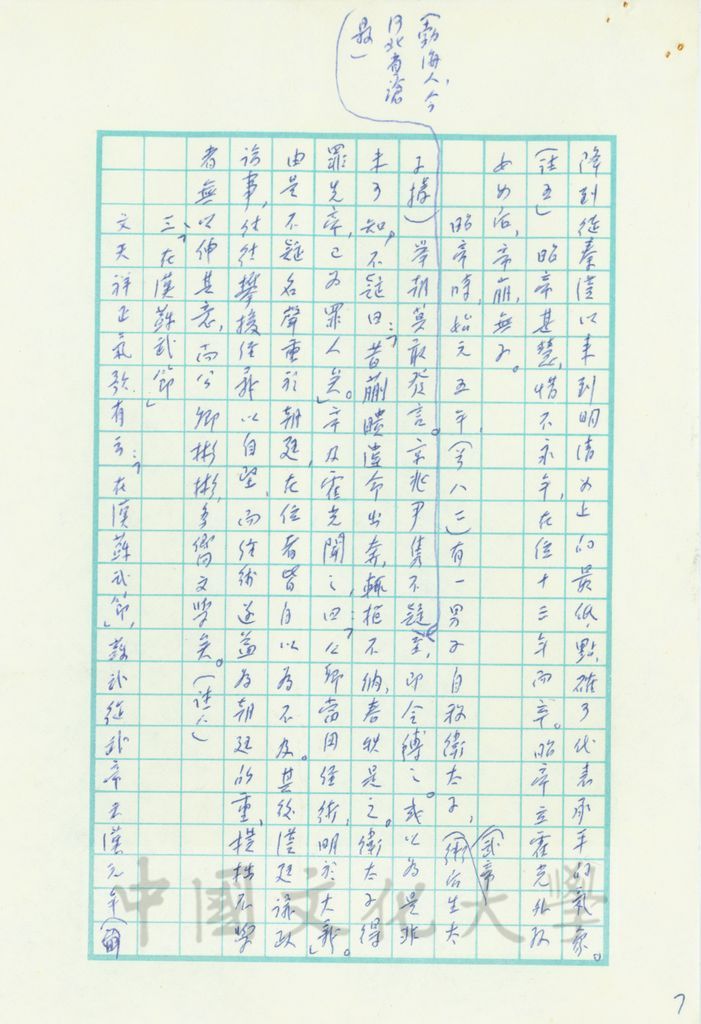 (勃海人,今
河北省滄
縣)
降到從秦漢以來到明清為止的最低點,確可代表承平的氣象。
(註五)昭帝甚慧,惜不永年,在位十三年而卒。昭帝立霍光外孫
女為后,帝崩,無子。
昭帝時,始元五年,(前八二)有一男子自稱衛太子,(武帝
(衛后生太
子據)舉朝莫敢發言。京兆尹雋不疑至,即令縛之。或以為是非
未可知,不疑曰:「昔蒯聵違命出奔,輒拒不納,春秋是之。衛太子得
罪先帝,已為罪人矣」。帝及霍光聞之,曰:「公卿當用經術,明於大義」。
由是不疑名聲重於朝廷,在位者皆自以為不及。其後漢廷議政
論事,往往攀援經義以自堅,而經術遂益為朝廷所重,樸拙不學
者無以伸其意,而公卿彬彬,多嚮文學矣。(註六)
三、「在漢蘇武節」
文天祥正氣歌有云:「在漢蘇武節」,蘇武從武帝天漢元年(前
中國文化大學
7